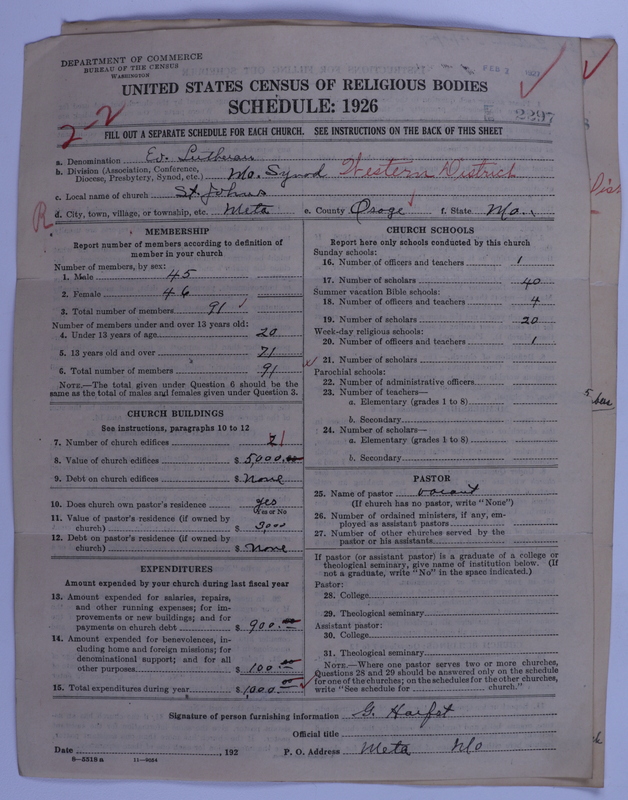 DEPARTMENT OF COMMERCE
BUREAU OF THE CENSUS
WASHINGTON
FEB 2 1927
UNITED STATES CENSUS OF RELIGIOUS BODIES
SCHEDULE: 1926
2-2
2297
FILL OUT A SEPARATE SCHEDULE FOR EACH CHURCH. SEE INSTRUCTIONS ON THE BACK OF THIS SHEET
a. Denomination Ev. Lutheran
b. Division (Association, Conference, Diocese, Presbytery, Synod, etc.) Mo. Synod Western District
c. Local name of church St. Johns
R
d. City, town, village, or township, etc. Meta e. County Osage f. State Mo.
MEMBERSHIP
Report number of members according to definition of
member in your church
Number of members, by sex:
1. Male 45
2. Female 46
3. Total number of members 91
Number of members under and over 13 years old:
4. Under 13 years of age 20
5. 13 years old and over 71
6. Total number of members 91
NOTE.—The total given under Question 6 should be
same as the total of males and females given under Question 3.
CHURCH BUILDINGS
See instructions, paragraphs 10 to 12
7. Number of church edifices 1
8. Value of church edifices $ 5,000.00
9. Debt on church edifices $ None
10. Does church own pastor's residence yes
Yes or No
11. Value of pastor's residence (if owned by
church) $ 3000
12. Debt on pastor's residence (if owned by
church) $ None
EXPENDITURES
Amount expended by your church during last fiscal year
13. Amount expended for salaries, repairs,
and other running expenses; for im-
provements or new buildings; and for
payments on church debt $ 900.00
14. Amount expended for benevolences, in-
cluding home and foreign missions; for
denominational support; and for all
other purposes $ 100.00
15. Total expenditures during year $ 1000.00
CHURCH SCHOOLS
Report here only schools conducted by this church
Sunday schools:
16. Number of officers and teachers 1
17. Number of scholars 40
Summer vacation Bible schools:
18. Number of officers and teachers 4
19. Number of scholars 20
Week-day religious schools:
20. Number of officers and teachers 1
21. Number of scholars
Parochial schools:
22. Number of administrative officers
23. Number of teachers—
a. Elementary (grades 1 to 8)
b. Secondary
24. Number of scholars—
a. Elementary (grades 1 to 8)
b. Secondary
PASTOR
25. Name of pastor vacant
(If church has no pastor, write "None")
26. Number of ordained ministers, if any, em-
ployed as assistant pastors
27. Number of other churches served by the
pastor or his assistants
If pastor (or assistant pastor) is a graduate of a college or
theological seminary, give name of institution below. (If
not a graduate, write "No" in the space indicated.)
Pastor:
28. College
29. Theological seminary
Assistant pastor:
30. College
31. Theological seminary
NOTE.—Where one pastor serves two or more churches,
Questions 28 and 29 should be answered only on the schedule
for one of the churches; on the schedules for the other churches,
write "See schedule for church."
Signature of person furnishing information G. Harfst
Official title
Date , 192 P. O. Address Meta Mo
8—5318a 11—9054